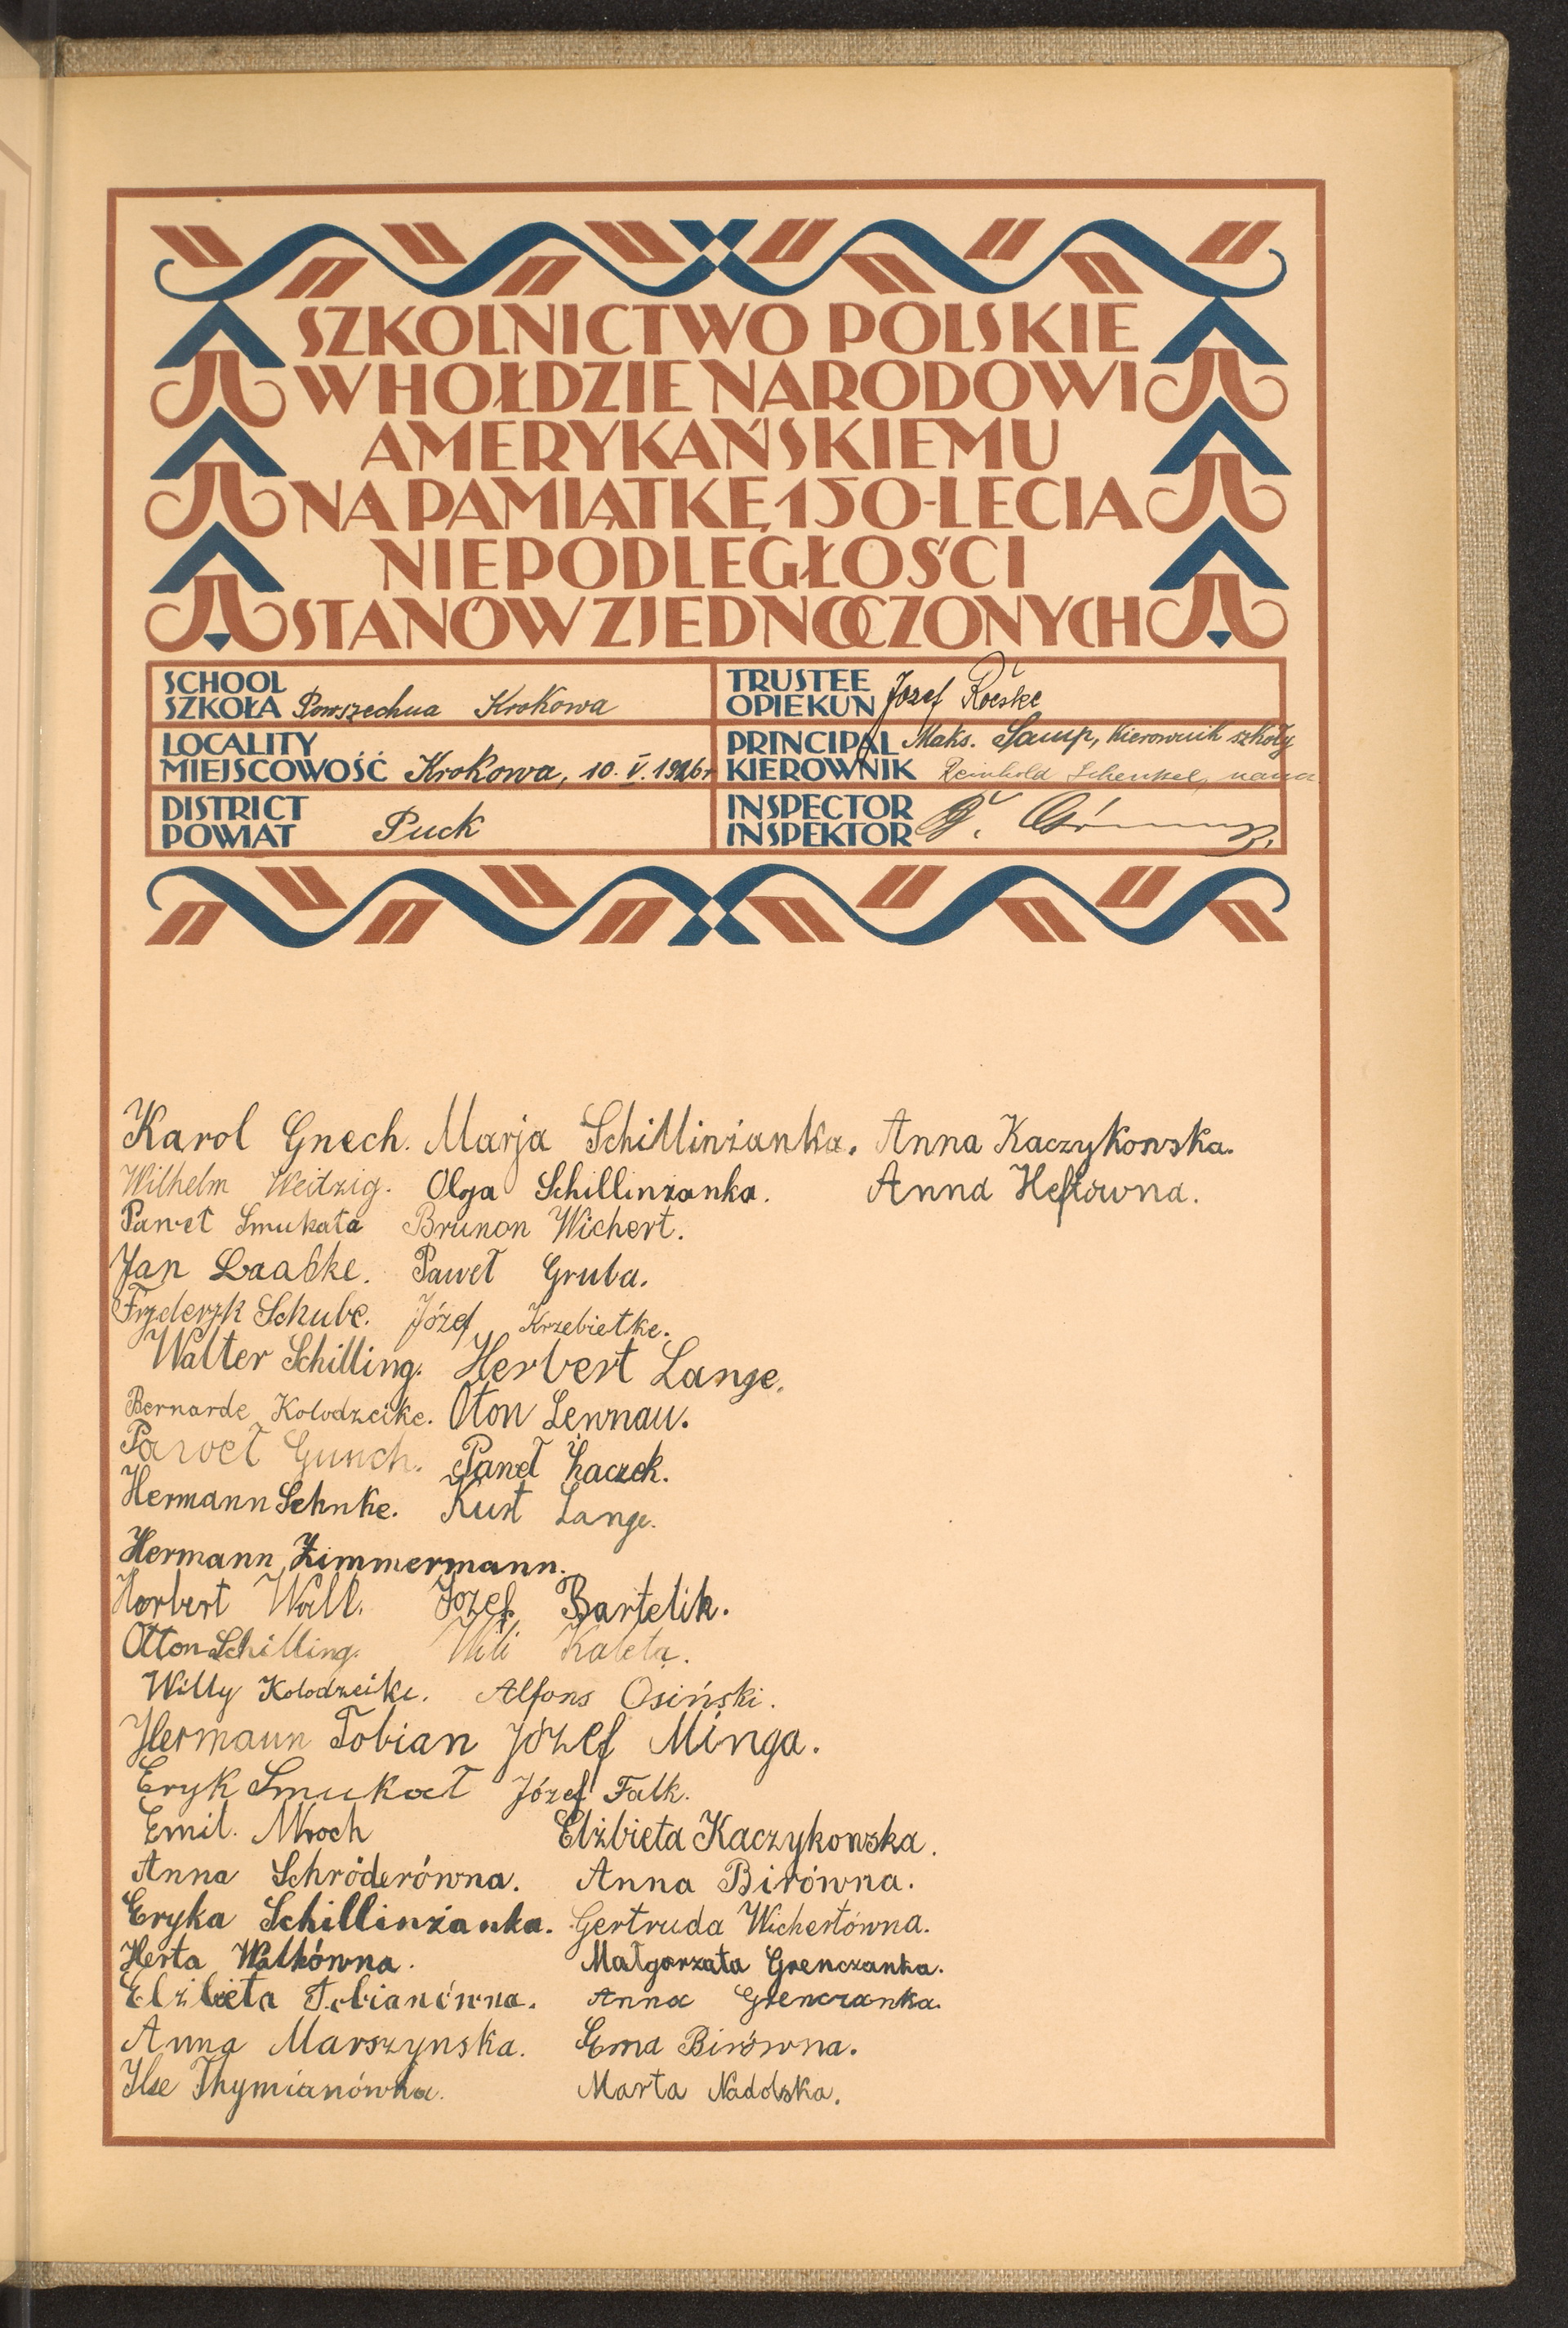 SZKOLNICTWO POLSKIE
W HOŁDZIE NARODOWI
AMERYKAŃSKIEMU
NA PAMIĄTKĘ 150-LECIA
NIEPODLEGŁOŚCI
STANÓW ZJEDNOCZONYCH
SCHOOL
SZKOŁA Powszechna Krokowa
TRUSTEE
OPIEKUN Józef Roeske
LOCALITY
MIEJSCOWOŚĆ Krokowa, 10. V. 1926r
PRINCIPAL Maks. Samp, kierownik szkoły
KIEROWNIK Reinhold Schenkel, naucz
DISTRICT
POWIAT Puck
INSPECTOR
INSPEKTOR
Karol Gnech. Marja Schillinżanka. Anna Kaczykowska.
Wilhelm Weitzig. Olga Schillinżanka. Anna Heftówna.
Paweł Smukała Brunon Wichert.
Jan Laabke. Paweł Gruba.
Fryderyk Schube. Józef Krzebietke.
Walter Schilling. Herbert Lange.
Bernarde Kolodzeike. Oton Lewnau.
Paweł Gunch. Paweł Łaczek.
Hermann Sehnke. Kurt Lange.
Hermann Zimmermann.
Herbert Wall. Józef Bartelik.
Otton Schilling. Wili Kaleta.
Willy Kolodzeike. Alfons Osiński.
Hermann Tobian Józef Minga.
Eryk Smukał Józef Falk.
Emil. Mroch Elżbieta Kaczykowska.
Anna Schröderówna. Anna Birówna.
Eryka Schillinżanka. Gertruda Wichertówna.
Herta Walkówna. Małgorzata Grenczanka.
Elżbieta Tobianówna. Anna Grenczanka.
Anna Marszynska. Ema Birówna.
Ilse Thymianówna. Marta Nadolska.